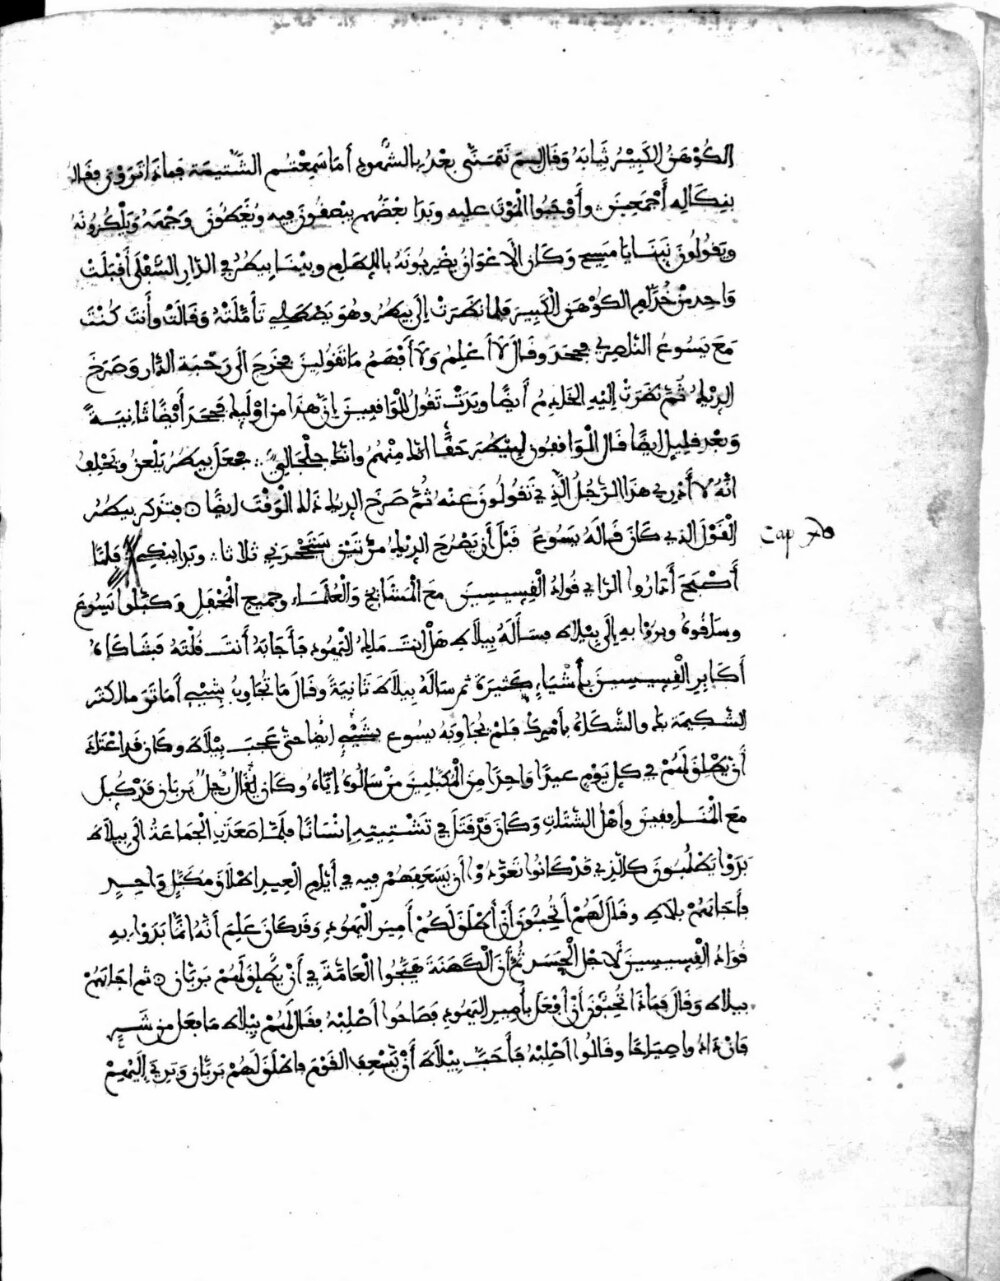 الكُوْهَنُ الكَبِيْرُ ثِيَابَهُ وَقَالَ لِمَ نَتَمَنَّى بَعْدُ بالشُّهُودِ أَمَا سَمِعْتُم الشَّتِيمَة فماذا تَرَوْنَ فقالـ
بنِكَالِهِ أَجْمَعِينَ وأَوْجَبُوا المَوْتَ عليه وبَدَا بَعْضُهم يبْصُقُونَ فيه ويُغَطُّونَ وَجْهَهُ ويَلْكُزُونَهُ
ويَقُولُونَ نَبِّنَا يا مَسِيح وَكَانَ الأعْوَانُ يضْرِبُونَهُ باللطام وبينما بيطرُ في الدَّارِ السُّفْلَى أَقْبَلَتْ
وَاحِدة مِنْ خُدَّامِ الكُوْهَنِ الكَبِيرِ فلما نَظَرَتْ إلَى بيطرُ وهُوَ يَصْطَلِي تَأَمَّلَتْهُ وَقَالَتْ وأَنتَ كُنْتَ
مَعَ يَسُوعَ النَّاصِرِي فجَحَدَ وقَالَ لاَ أَعْلَمُ وَلاَ أَفْهَمُ مَا تَقُولينَ فخَرَجَ الَى رَحْبَةِ الدَّار وَصَرَخَ
الدِيكُ ثُمَّ نَظَرَتْ إِلَيْهِ الخَادِمُ أَيضًا وبَدَتْ تَقُولُ لِلْوَاقِفِينَ إنَّ هَذا مِن أوْلَيِكَ فجَحَدَ أَيْضًا ثَانِيَةً
وَبَعْدَ قَلِيل ايضًا قَال الْوَاقِفُونَ لِبيْطَرَ حَقًّا انَّكَ مِنْهُم وانَّكَ جِلْجَالِيٌّ فجَعَلَ بيطرُ يَلْعَنُ ويَحْلِفُ
انَّهُ لاَ أَدْرِي هَذَا الرَّجُلُ الَّذِي تَقُولُونَ عَنْهُ ثُمَّ صَرَخَ الدِيكُ ذَلكَ الْوَقْتَ ايضًا ۞ فتذكر بيطرُ
الْقَوْلَ الذي كَانَ قَالَهُ يَسُوعُ قَبْلَ أَن يَصْرُخَ الدِيْكُ مَرَّتَيْنِ سَتَجْحَدُنِي ثلاثا وبَدا يبْكِي فلَمَّا
Cap
أَصْبَحَ أدَارُوا الرَّاي قُوادُ الْقِسِيسِينَ مَعَ الْمَشَايِخِ وَالْعُلَمَاء وجميع الْمَحْفَل وَكَبَّلُوا يَسُوعَ
وسَاقُوهُ وبَرَوْا به إلَى بِيْلاَط فسَأَلَهُ بيلاَط هَلْ انتَ مَلِكُ اليَهُودِ فأَجَابَهُ أَنتَ قُلْتَهُ فشَاكَاهُ
أَكَابِر الْقِسِيسِينَ بأَشْيَاء كَثِيرَة ثم سَالَهُ بيلاَط ثَانِيَةً وقَالَ مَا تُجَاوِبُ بشَيْءٍ أَمَا تَرَى مَا اكثر
الشَّكِيَة بكَ والشَّكَاةُ بأَمْرِكَ فَلمْ يُجَاوبْهُ يَسُوع بشَيْءٍ ايْضًا حتَّى عَجِبَ بيْلاَط وكان قد اعْتَادَ
أَن يُطْلِقَ لَهُمْ في كل يَوْم عيدٍ وَاحِدًا مِنَ الْمُكَبَّلِينَ مَنْ سَالُوهُ إيَّاهُ وكَانَ يُقَالُ رَجُل بَرَبَّان قَدْ كُبِّل
مَعَ الْمُنَافِقِينَ وأَهْلِ الشَّتَاتِ وَكَانَ قَدْ قَتَلَ في تَشْتِيتِهِ إنْسَانًا فلَمَّا صَعَدَتِ الْجَمَاعَةُ الَى بيلاَط
بَدَوْا يَطْلُبُونَ كالَّذِي قَدْ كَانُوا تَعَوَّدُوْا أَن يُسَعِفَهُمْ فيه في أَيَّامِ الْعِيدِ اطْلاَقَ مُكَبَّلٍ وَاحِدٍ
فأَجَابَهُمْ بلاَط وقَالَ لَهُمْ أتُحِبُّونَ أَنْ أُطْلِقَ لَكُمْ أَمِيرَ الْيَهُودِ وَقَد كَانَ عَلِمَ أَنَّهُ انَّمَا بَرَوْا به
قُوَادُ الْقِسِيسِينَ لأَجْلِ الْحَسَدِ ثُمَّ أَنَّ الْكَهَنَةَ هَيَّجُوا الْعَامَّةَ في أَنْ يُطْلِقَ لَهُمْ بَرَبَّان ۞ ثم اجَابَهُمْ
بيلاَط وَقَالَ فَمَاذَا تُحِبُّونَ أَنْ أَفْعَلَ بأَمِيرِ اليَهُودِ فَصَاحُوا أَصْلِبْهُ فقَال لَهُمْ بِيْلاط مَا فعَل مِن شَرٍّ
فازْدَادُوا صِيَاحًا وقَالُوا اصْلِبْهُ فأَحَبَّ بِيْلاَط أَنْ يُّسْعِفَ القَوْمَ فاطْلَقَ لَهُمْ بَرَبَّان وَبَرِئَ إلَيْهِمْ